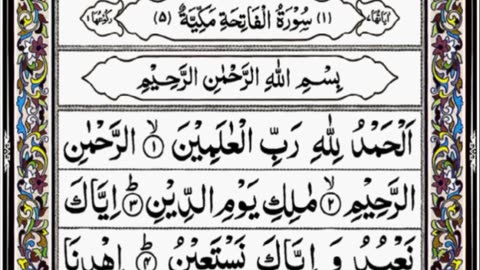 اٰیاتها٧ (١) سُوْرَةُ الْفَاتِحَةِ مَكِّيَّةٌ (٥) رکوعها١
بِسْمِ اللهِ الرَّحْمٰنِ الرَّحِيْمِ
اَلْحَمْدُ لِلّٰهِ رَبِّ الْعٰلَمِيْنَ ۙ﴿١﴾ الرَّحْمٰنِ
الرَّحِيْمِ ۙ﴿٢﴾ مٰلِكِ يَوْمِ الدِّيْنِ ؕ﴿٣﴾ اِيَّاكَ
نَعْبُدُ وَ اِيَّاكَ نَسْتَعِيْنُ ؕ﴿٤﴾ اِهْدِنَا